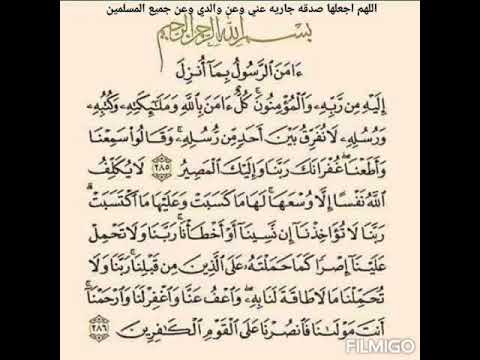 اللهم اجعلها صدقه جاريه عني وعن والدي وعن جميع المسلمين
بسم الله الرحمن الرحيم
ءَامَنَ الرَّسُولُ بِمَا أُنزِلَ
إِلَيْهِ مِن رَّبِّهِ وَالْمُؤْمِنُونَ ۚ كُلٌّ ءَامَنَ بِاللَّهِ وَمَلَٰٓئِكَتِهِ وَكُتُبِهِ
وَرُسُلِهِ لَا نُفَرِّقُ بَيْنَ أَحَدٍ مِّن رُّسُلِهِ ۚ وَقَالُوا سَمِعْنَا
وَأَطَعْنَا ۖ غُفْرَانَكَ رَبَّنَا وَإِلَيْكَ الْمَصِيرُ ٢٨٥ لَا يُكَلِّفُ
اللَّهُ نَفْسًا إِلَّا وُسْعَهَا ۚ لَهَا مَا كَسَبَتْ وَعَلَيْهَا مَا اكْتَسَبَتْ ۗ
رَبَّنَا لَا تُؤَاخِذْنَا إِن نَّسِينَا أَوْ أَخْطَأْنَا ۚ رَبَّنَا وَلَا تَحْمِلْ
عَلَيْنَا إِصْرًا كَمَا حَمَلْتَهُ عَلَى الَّذِينَ مِن قَبْلِنَا ۚ رَبَّنَا وَلَا
تُحَمِّلْنَا مَا لَا طَاقَةَ لَنَا بِهِ ۖ وَاعْفُ عَنَّا وَاغْفِرْ لَنَا وَارْحَمْنَا ۚ
أَنتَ مَوْلَىٰنَا فَانصُرْنَا عَلَى الْقَوْمِ الْكَٰفِرِينَ ٢٨٦
FILMIGO